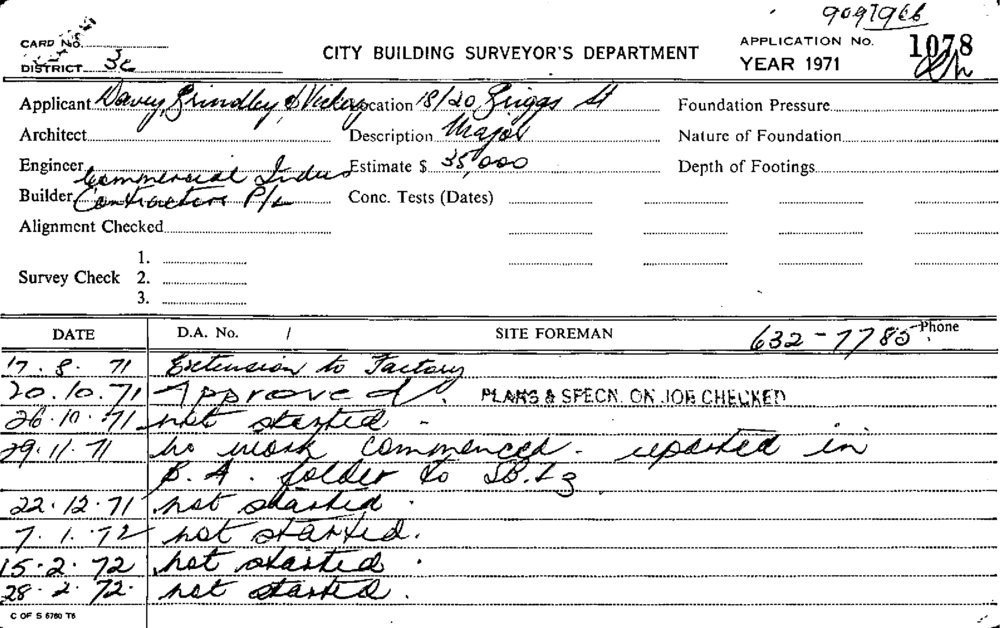 909 1966
CARD No.
CITY BUILDING SURVEYOR'S DEPARTMENT
APPLICATION No. 1078
DISTRICT 3c
YEAR 1971
Applicant Davey, Brindley & Vickary Location 18/20 Briggs St Foundation Pressure
Architect Description Major Nature of Foundation
Engineer Estimate $ 35,000 Depth of Footings
Commercial Indus
Builder Contractors P/L Conc. Tests (Dates)
Alignment Checked
1.
Survey Check 2.
3.
DATE D.A. No. / SITE FOREMAN 632-7785 Phone
17. 8. 71 Extension to Factory
20.10.71 Approved. PLANS & SPECN. ON JOB CHECKED
26.10.71 not started -
29.11.71 no work commenced. reported in
B.A. folder to
22.12.71 not started.
7.1.72 not started.
15.2.72 not started.
28.2.72. not started.
C OF S 6760 T6